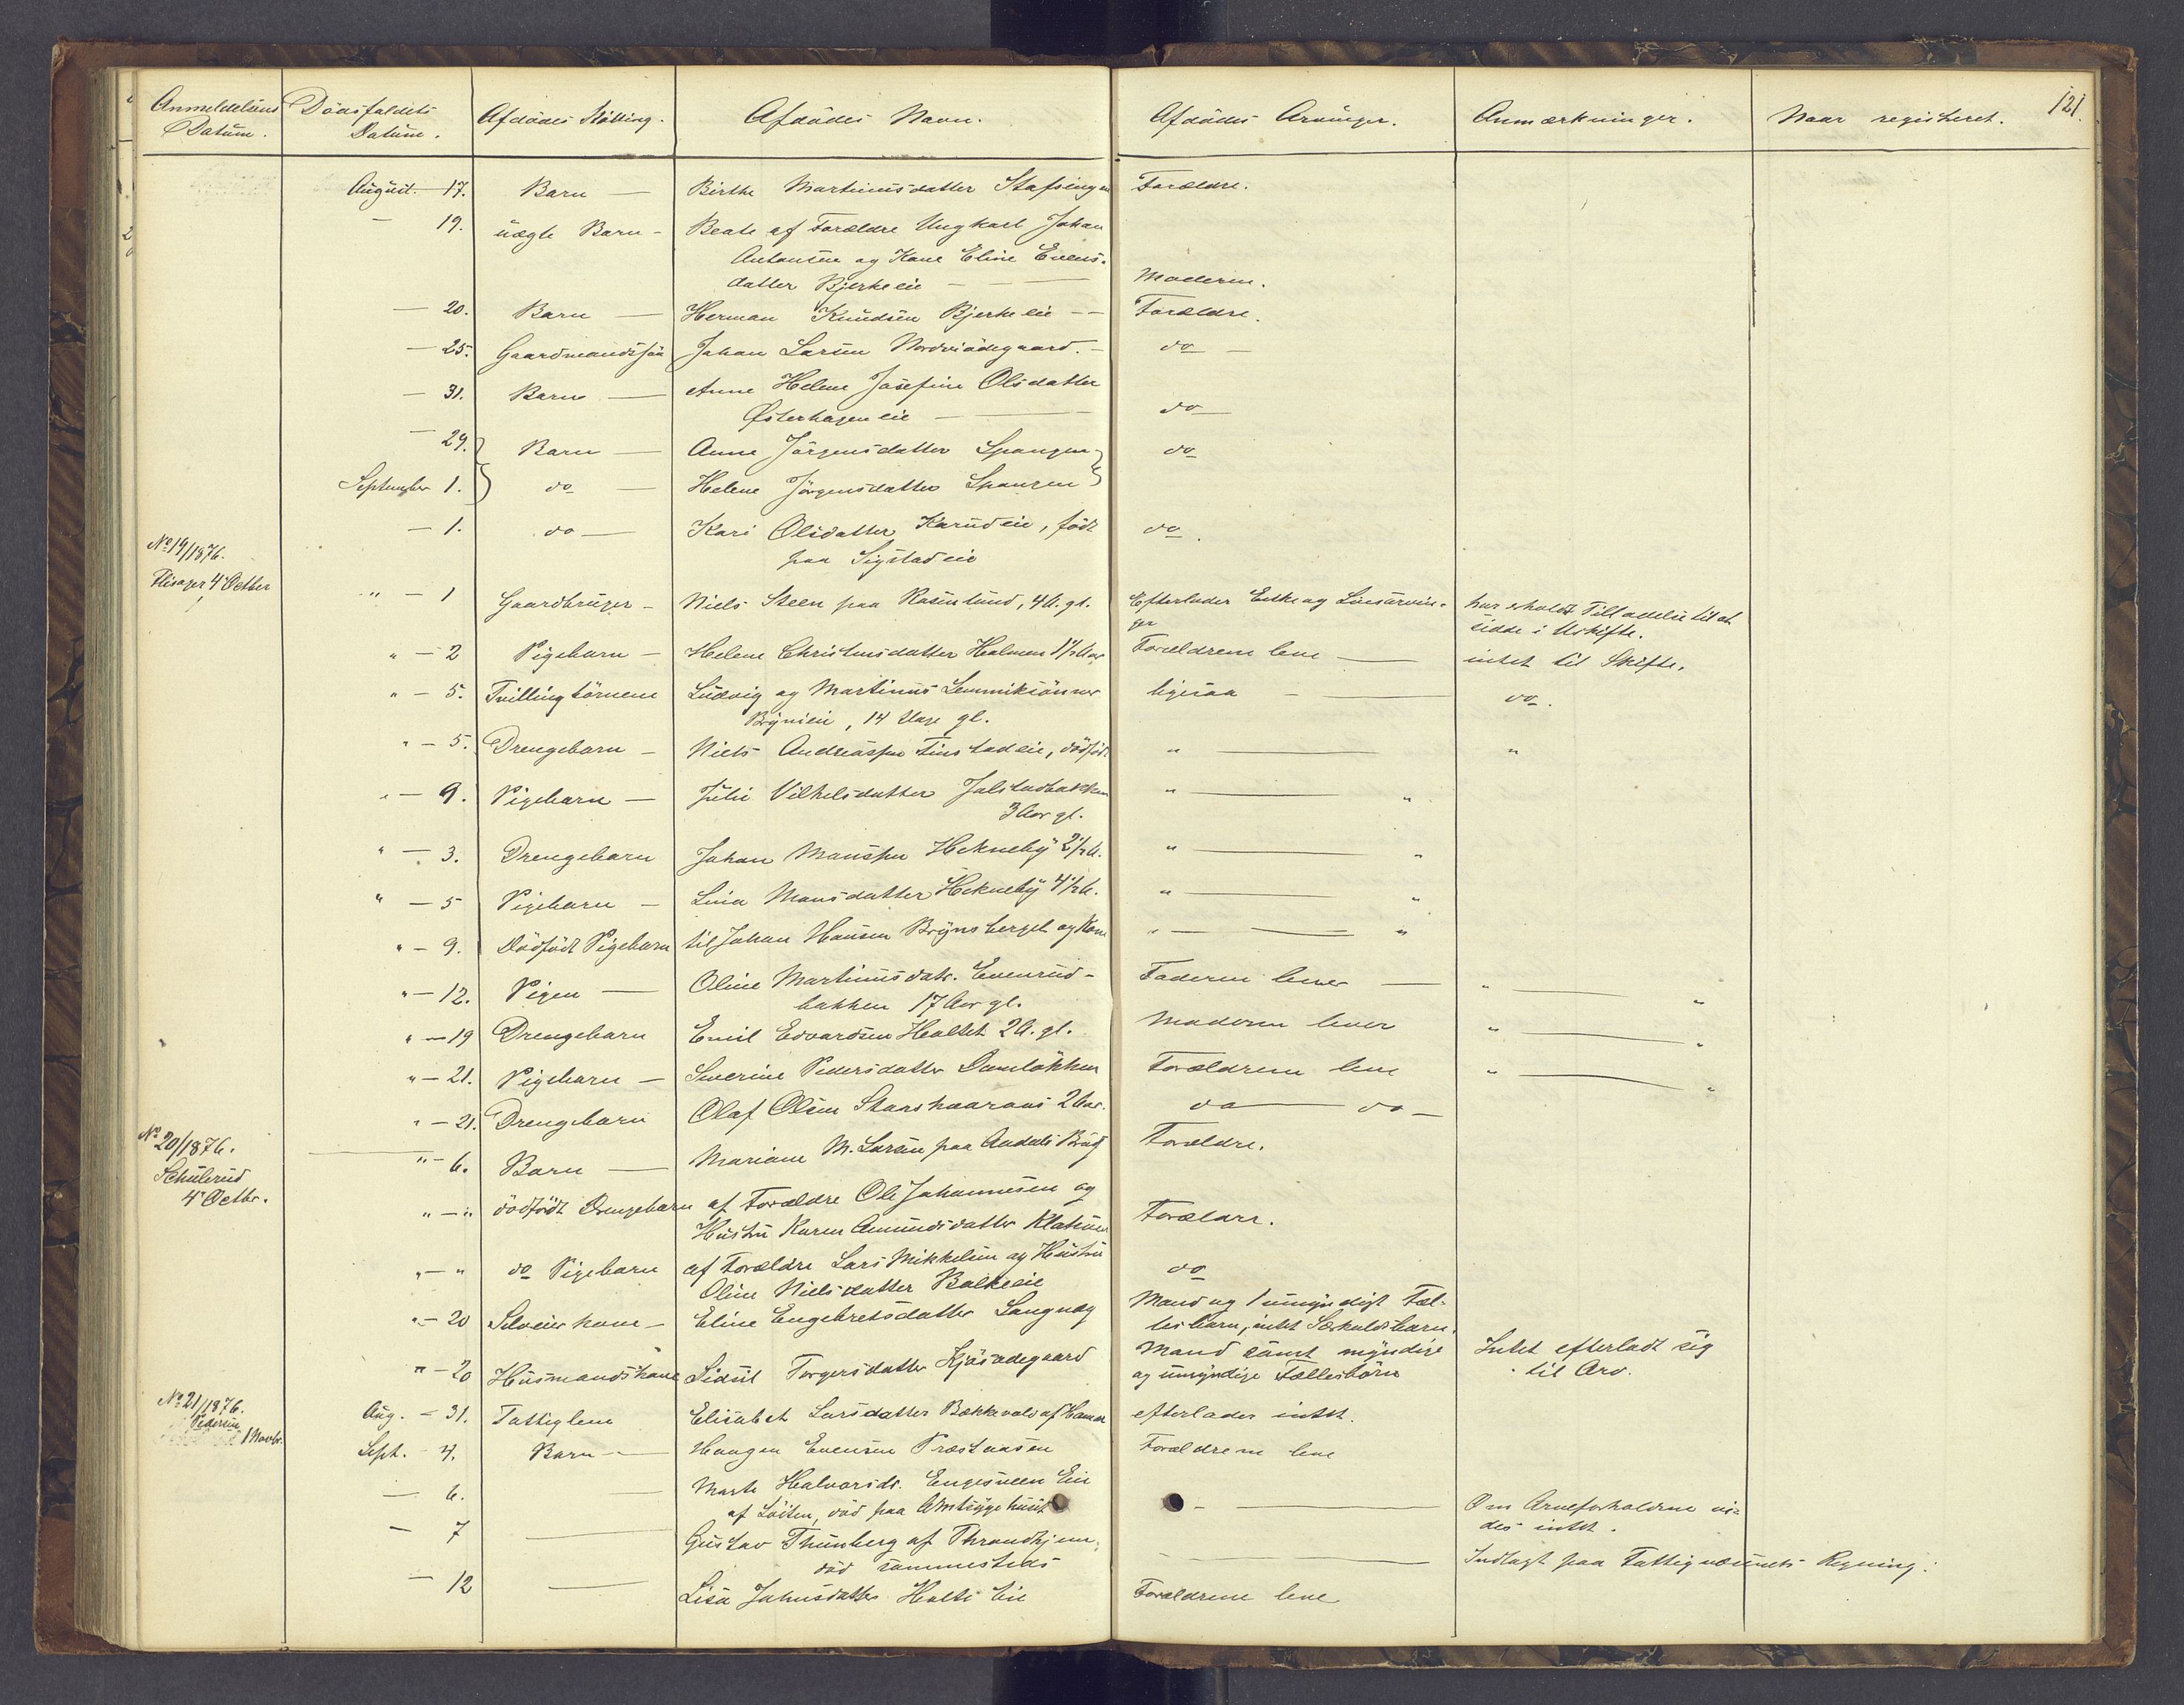 121.
Anmeldelsens Datum. Dödsfaldets Datum. Afdödes Stilling. Afdödes Navn. Afdödes Arvinger. Anmærkninger. Naar registeret.
August 17. Barn — Birthe Martinusdatter Forældre.
— 19. uægte Barn - Beate af Forældre Ungkarl Johan
Antonsen og Kone Eline Evens-
datter Bjerkeeie — Moderen.
— 20. Barn — Herman Knudsen Bjerkeeie — Forældre.
— 25. Gaardmandssön Johan Larsen — do —
— 31. Barn — Anne Helene Josefine Olsdatter
Østerhagen eie — do —
— 29. } Barn — Anne Jörgensdatter Spangen } do
September 1. } do — Helene Jörgensdatter Spangen }
— 1. do — Kari Olsdatter Karud eie, födt do.
paa Sigstad eie
No 19/1876.
Flisager 4 Octber
" — 1 Gaardbruger - Niels Steen paa Rasmlund, 46. gl. Efterlader Enke og Livsarvin-
ger har erholdt Tilladelse til at
sidde i Uskifte.
" — 2 Pigebarn - Helene Christensdatter Holmen 1 1/2 Aar Forældrene leve — intet til Skifte.
" — 5. Tvillingbörnene Ludvig og Martinus ligesaa — do.
14 Uger gl.
" — 5. Drengebarn - Niels Andreassen Finstad eie, dödfödt " — "
" — 9. Pigebarn — Julie Vilhelsdatter Jolstadbakken " — "
3 Aar gl.
" — 3. Drengebarn Johan Monssen Hekneby 2 1/2 A. " — "
" — 5 Pigebarn - Lina Monsdatter Hekneby 4 1/2 A. " — "
" — 9. Dödfödt Pigebarn til Johan Hansen Brynsberget og Kone " — "
" — 12. Pigen — Oline Martinusdatr. Evenrud-
bakken 17 Aar gl. Faderen lever — " — "
" — 19 Drengebarn Emil Edvardsen Holtet 2 A. gl. Moderen lever " — "
" — 21. Pigebarn — Severine Pedersdatter Damlökken Forældrene leve " — "
" — 21. Drengebarn Olaf Olsen 2 Aar. do — do —
No 20/1876.
Schulerud
4 Octbr.
" — 6. Barn — Mariane M. Larsen paa Forældre.
" — " dödfödt Drengebarn af Forældre Ole Johannesen og
Hustru Karen Amundsdatter Forældre.
" — " do Pigebarn af Forældre Lars Mikkelsen og Hustru
Oline Nielsdatter Balkeeie do
" — 20 Selveierkone — Eline Engebretsdatter Mand og 1 umyndigt Fæl-
lesbarn, intet Særkuldsbarn.
" — 20 Husmandskone Torgersdatter Mand samt myndige
og umyndige Fællesbörn Intet efterladt sig
til Arv.
No 21/1876.
Pedersen
1 Novbr.
Aug. — 31. Fattiglem Elisabet Larsdatter af Hamar efterlader intet.
Sept. — 4. Barn — Haagen Evensen Forældrene leve
— 6. — Marte Halvorsdr. Engesveen Eie
af Löiten, död paa Amtssygehuset — Om Arveforholdene vi-
des intet.
— 7 — Gustav Thunberg af Throndhjem,
död sammesteds — Indlagt paa Fattigvæsenets Regning.
— 12 — Lisa Johnsdatter Holts Eie Forældrene leve